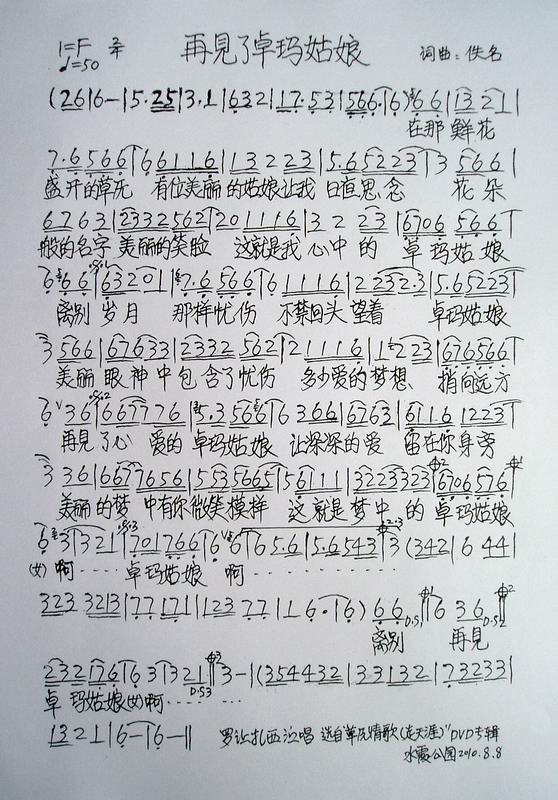 1=F 2/4 再見了卓玛姑娘 词曲：佚名
♩=50
(26|6-|5·25|3·1|632|17·53|566·|6) 66|1321|
在那 鲜花
7·6566|66116|132223|5·65223|3 566|
盛开的草原 有位美丽的姑娘让我 日直思念 花朵
6763|2332562|201116|32 23|6706 566|
般的名字 美丽的笑脸 这就是我 心中的 卓玛姑娘
6 66|6320|7·6566|61116|2232·3|5·65223|
离别 岁月 那样忧伤 不禁回头望着 卓玛姑娘
3566|67633|2332 562|21116|1 223|676566|
美丽眼神中包含了忧伤 多少爱的梦想 捎向远方
6 36|667776|5·3566|6 366|6763|6116 1223|
再見了心爱的卓玛姑娘 让深深的爱 留在你身旁
3 36|6677656|5535665|56111|3223323|6706576|
美丽的梦中有你微笑模样 这就是梦中的卓玛姑娘
6 3|321|701766|6 6|65·6|5·6543|3 (342|6 44|
(女) 啊 卓玛姑娘 啊
323 3213|77171|123 77|16·|6) 66 D.S1 6 36 D.S2
离别 再見
232176|63|321 D.S3 3-|(354432|33132|73233|
卓玛姑娘(女)啊
1321|6-|6-||
罗让扎西泣唱 选自“草原情歌(走天涯)”DVD专辑
水霞公园2010.8.8